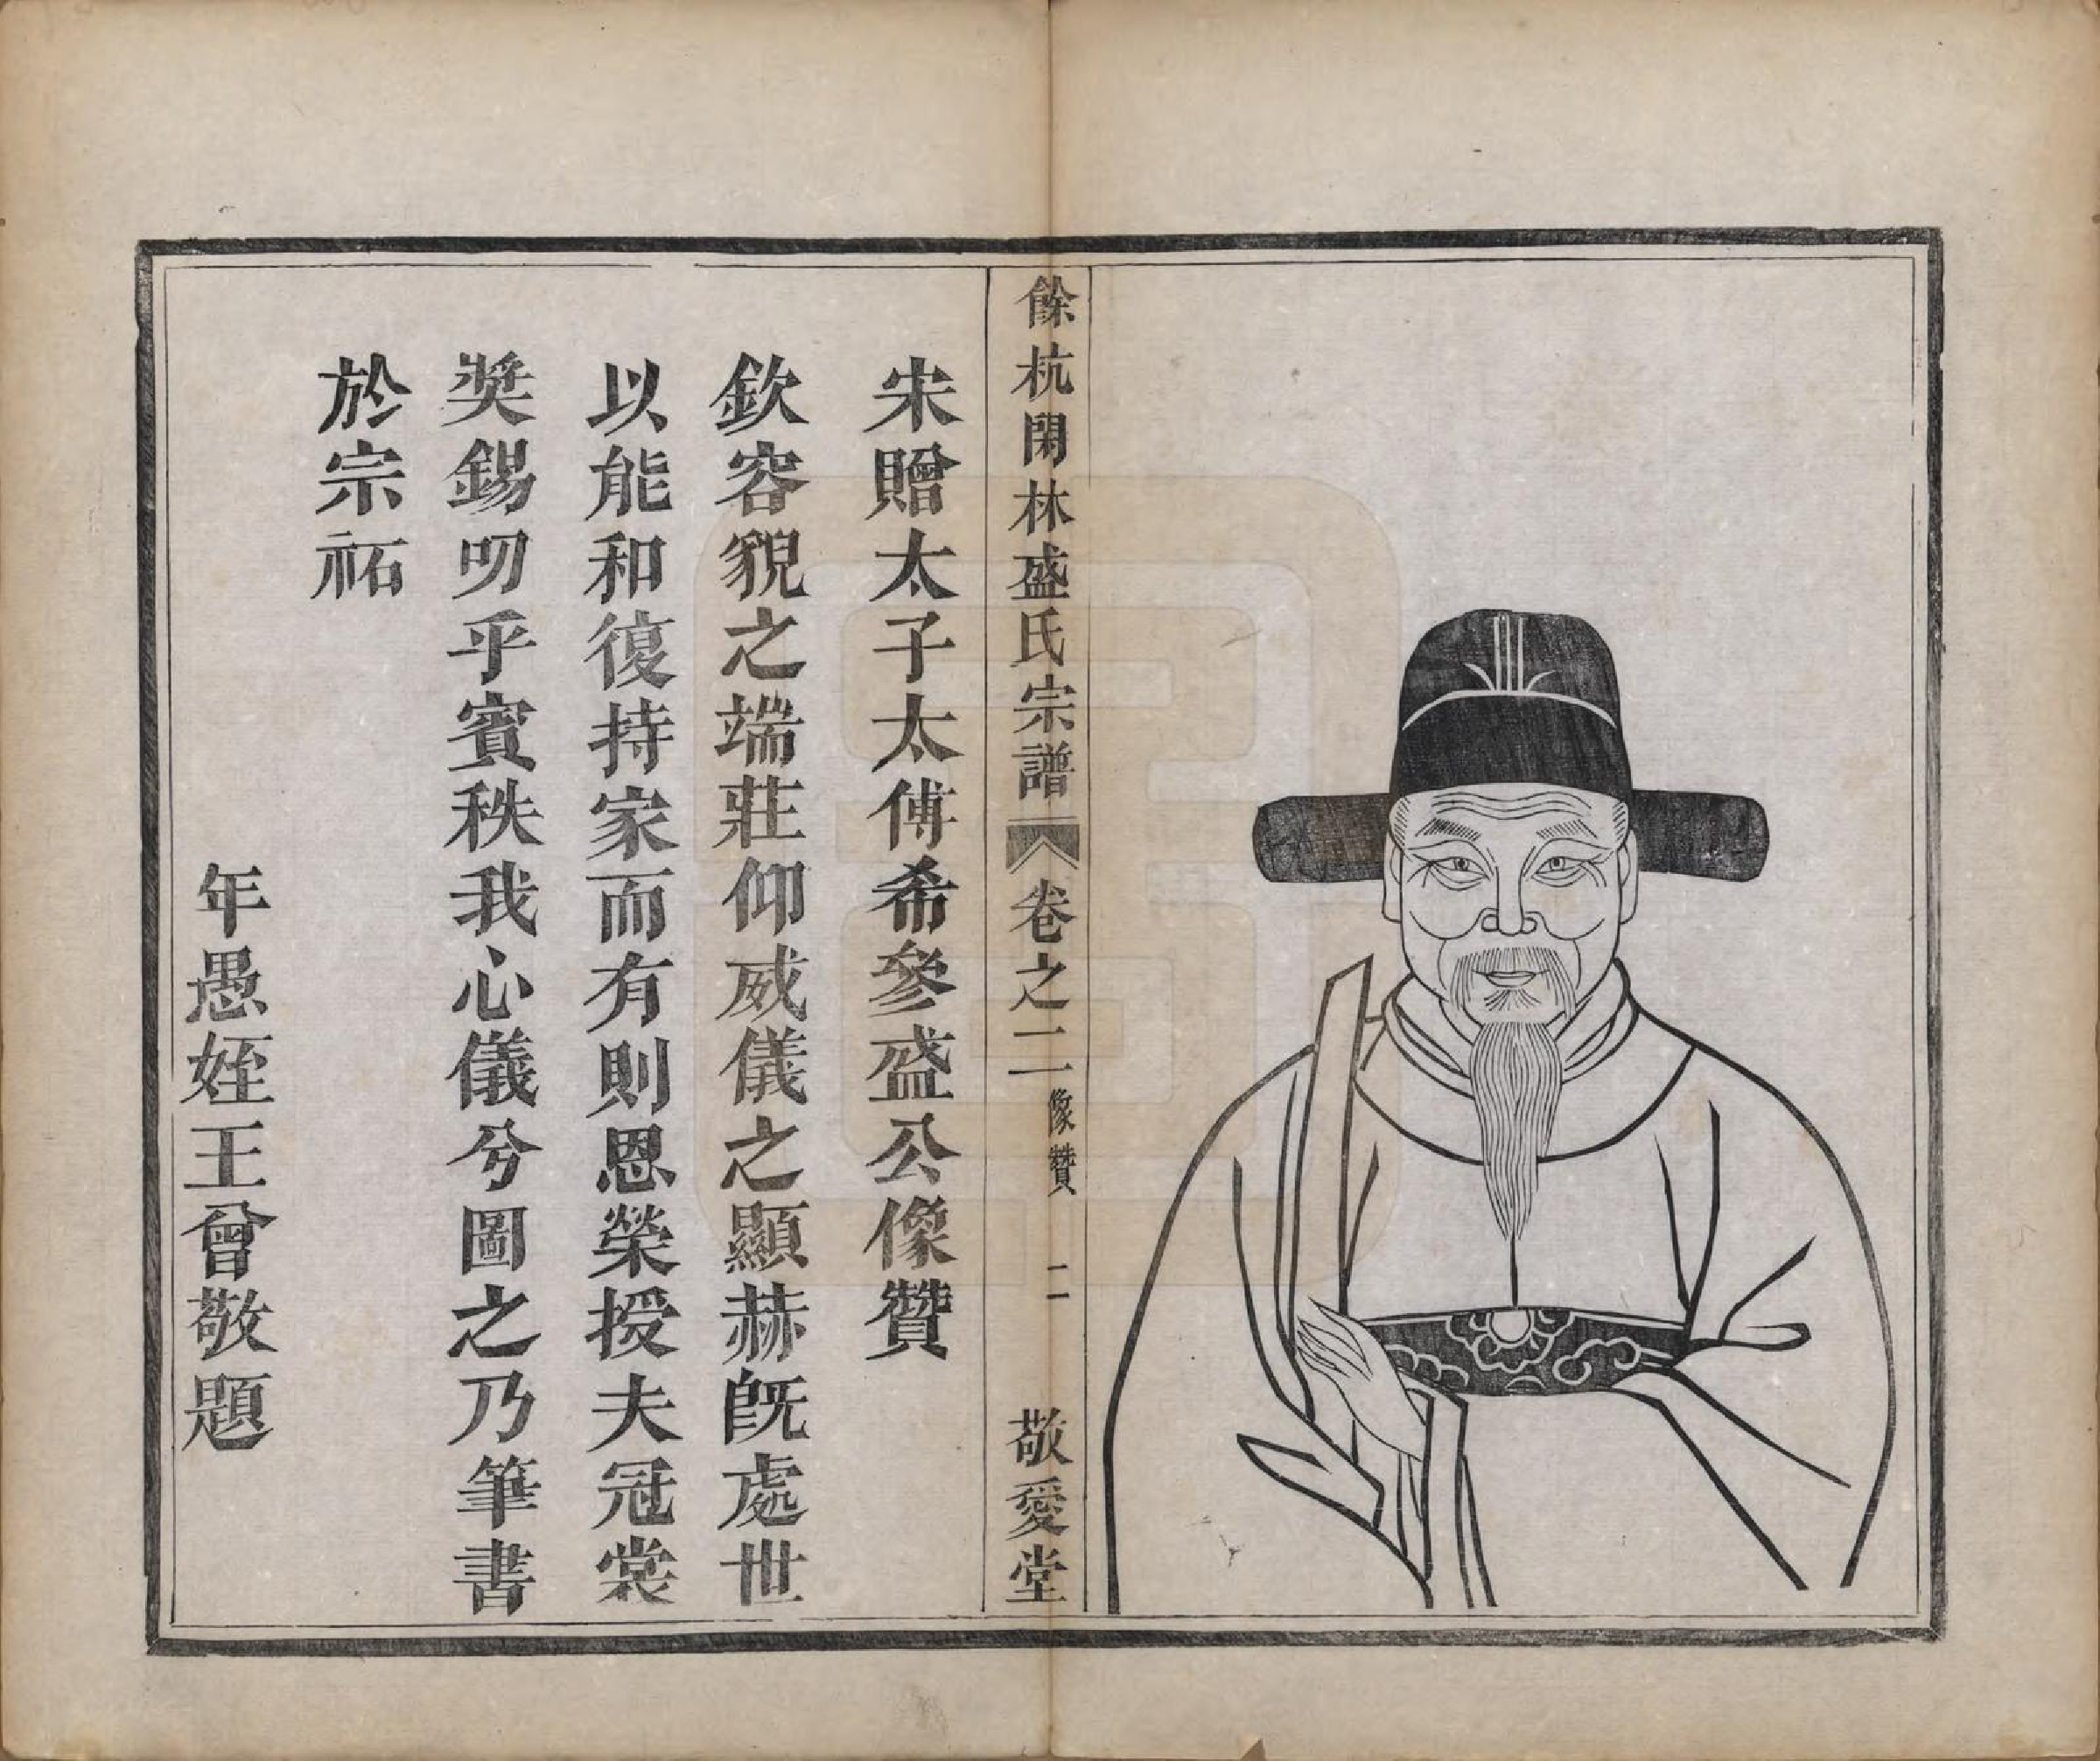 餘杭閑林盛氏宗譜 卷之二 像贊 二 敬愛堂
宋贈太子太傅希參盛公像贊
欽容貌之端莊仰威儀之顯赫既處世
以能和復持家而有則恩榮授夫冠裳
奬錫叨乎賓秩我心儀兮圖之乃筆書
於宗祏
年愚姪王曾敬題